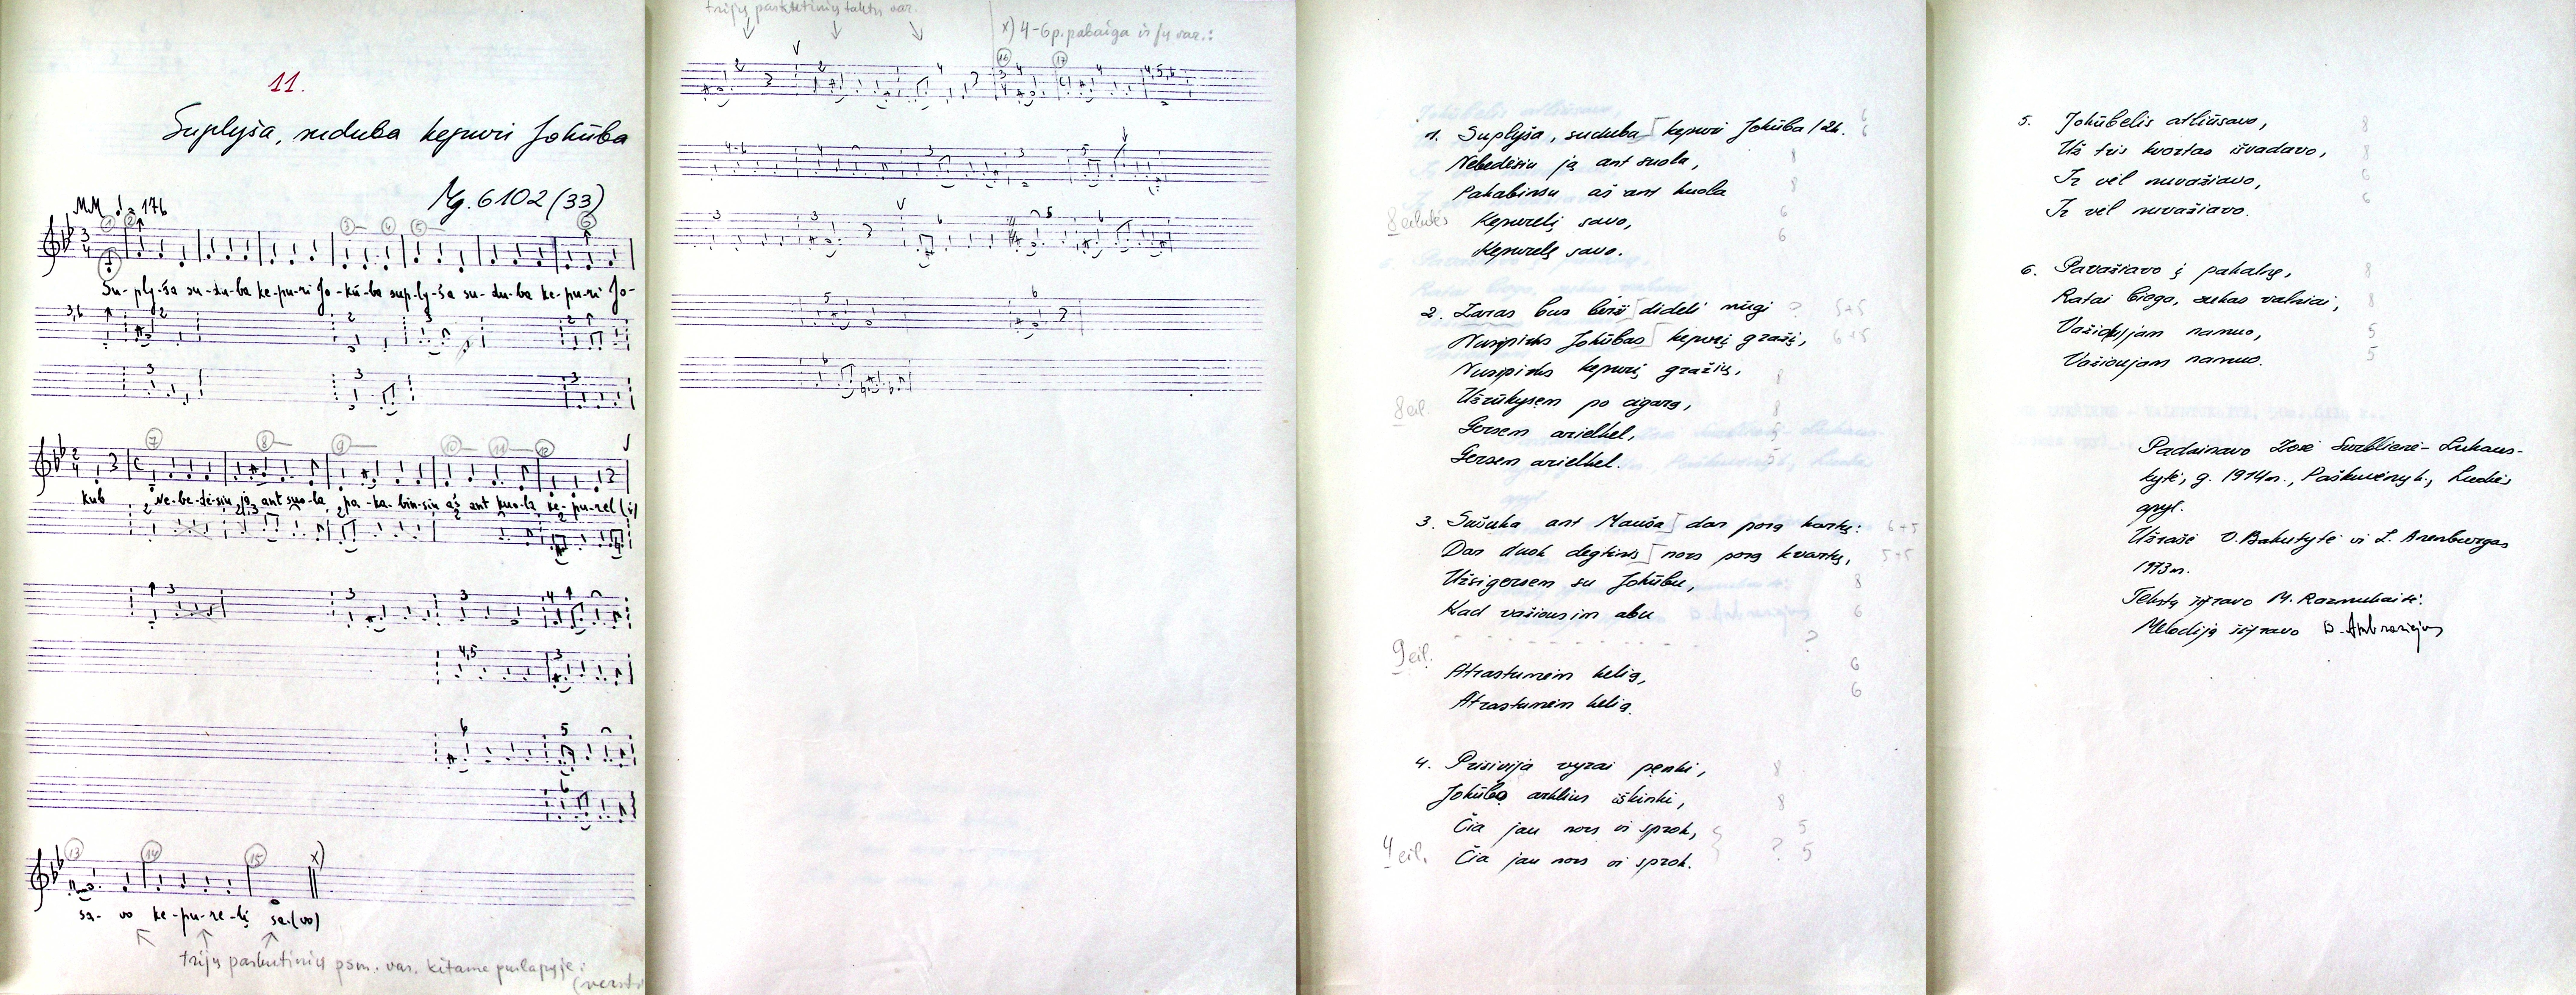 11.
Suplyša, suduba kepuri Jokūba
Mg. 6102 (33)
MM ♩ = 176
Su-ply-ša su-du-ba ke-pu-ri Jo-kū-ba sup-ly-ša su-du-ba ke-pu-ri Jo-
kub Ne-be-dė-siu ją ant suo-la, pa-ka-bin-siu aš ant kuo-la ke-pu-rel(į)
sa-vo ke-pu-re-lį sa-(vo)
trijų paskutinių psm. var. kitame puslapyje:
trijų paskutinių taktų var.
x) 4-6 p. pabaiga ir jų var.:
1. Suplyša, suduba kepuri Jokūba / 2k.
Nebedėsiu ją ant suola,
Pakabinsu aš ant kuola
8 eilutės Kepurelį savo,
Kepurelę savo.
2. Zaras bus birži dideli mūgi
Nusipirks Jokūbas kepurį gražį,
Nusipirks kepurį gražių,
8 eil. Užrūkysem po cigarą,
Gersem arielkel,
Gersem arielkel.
3. Sušuka ant Mauša dar porą kartų:
Dar duok degtinės nors porą kvartų,
Užsigersem su Jokūbu,
Kad važiousim abu
9 eil.
Atrastumėm kelią,
Atrastumėm kelią.
4. Prisivija vyrai penki,
Jokūbo arklius iškinki,
Čia jau nors ir sprok,
4 eil. Čia jau nors ir sprok.
5. Jokūbelis atliūsavo,
Už tris kvortas išvadavo,
Ir vėl nuvažiavo,
Ir vėl nuvažiavo.
6. Pavažiavo į pakalnę,
Ratai bioga, sukas valniai,
Važioujam namuo,
Važioujam namuo.
Padainavo Zosė Surblienė-Lukaus-
kytė, g. 1914 m., Paškuvėnų k.,
apyl.
Užrašė O. Bakutytė ir L. Arenburgas
1973 m.
Tekstą šifravo M. Razmukaitė.
Melodiją šifravo D. Ambraziejus